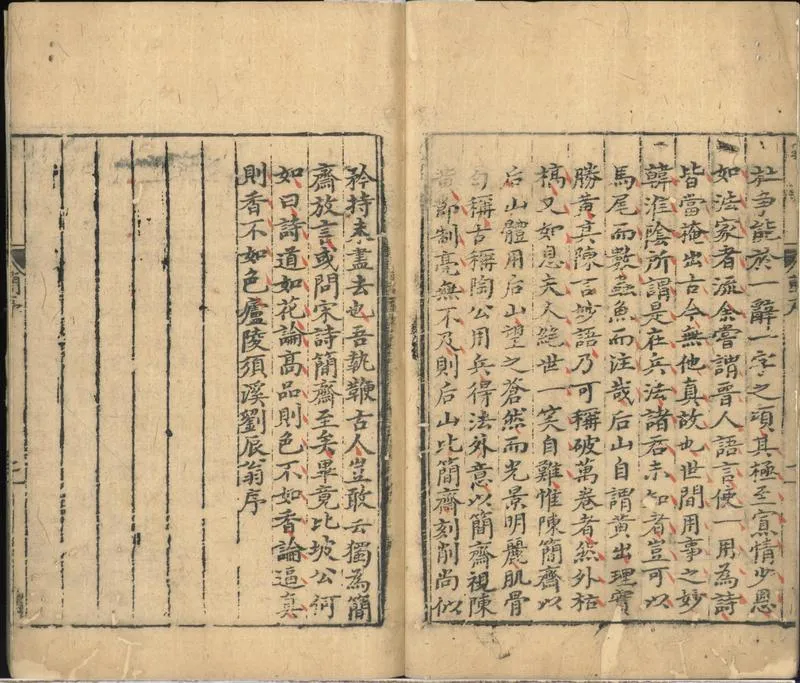 於爭能於一辭一字之頃其極至寡情少恩
如法家者流余嘗謂晋人語言使一用為詩
皆當掩出古今無他真故也世間用事之妙
韓淮陰所謂是在兵法諸君未知者豈可以
馬尾而數蟲魚而注哉后山自謂黃出理實
勝黃其陳言妙語乃可稱破萬卷者然外枯
槁又如息夫人絕世一笑自難惟陳簡齋以
后山體用后山望之蒼然而光景明麗肌骨
匀稱古稱陶公用兵得法外意以簡齋視陳
黃節制亮無不及則后山比簡齋刻削尚似
矜持未盡去也吾執鞭古人豈敢云獨為簡
齋放言或問宋詩簡齋至矣畢竟比坡公何
如曰詩道如花論高品則色不如香論逼真
則香不如色廬陵須溪劉辰翁序
簡序